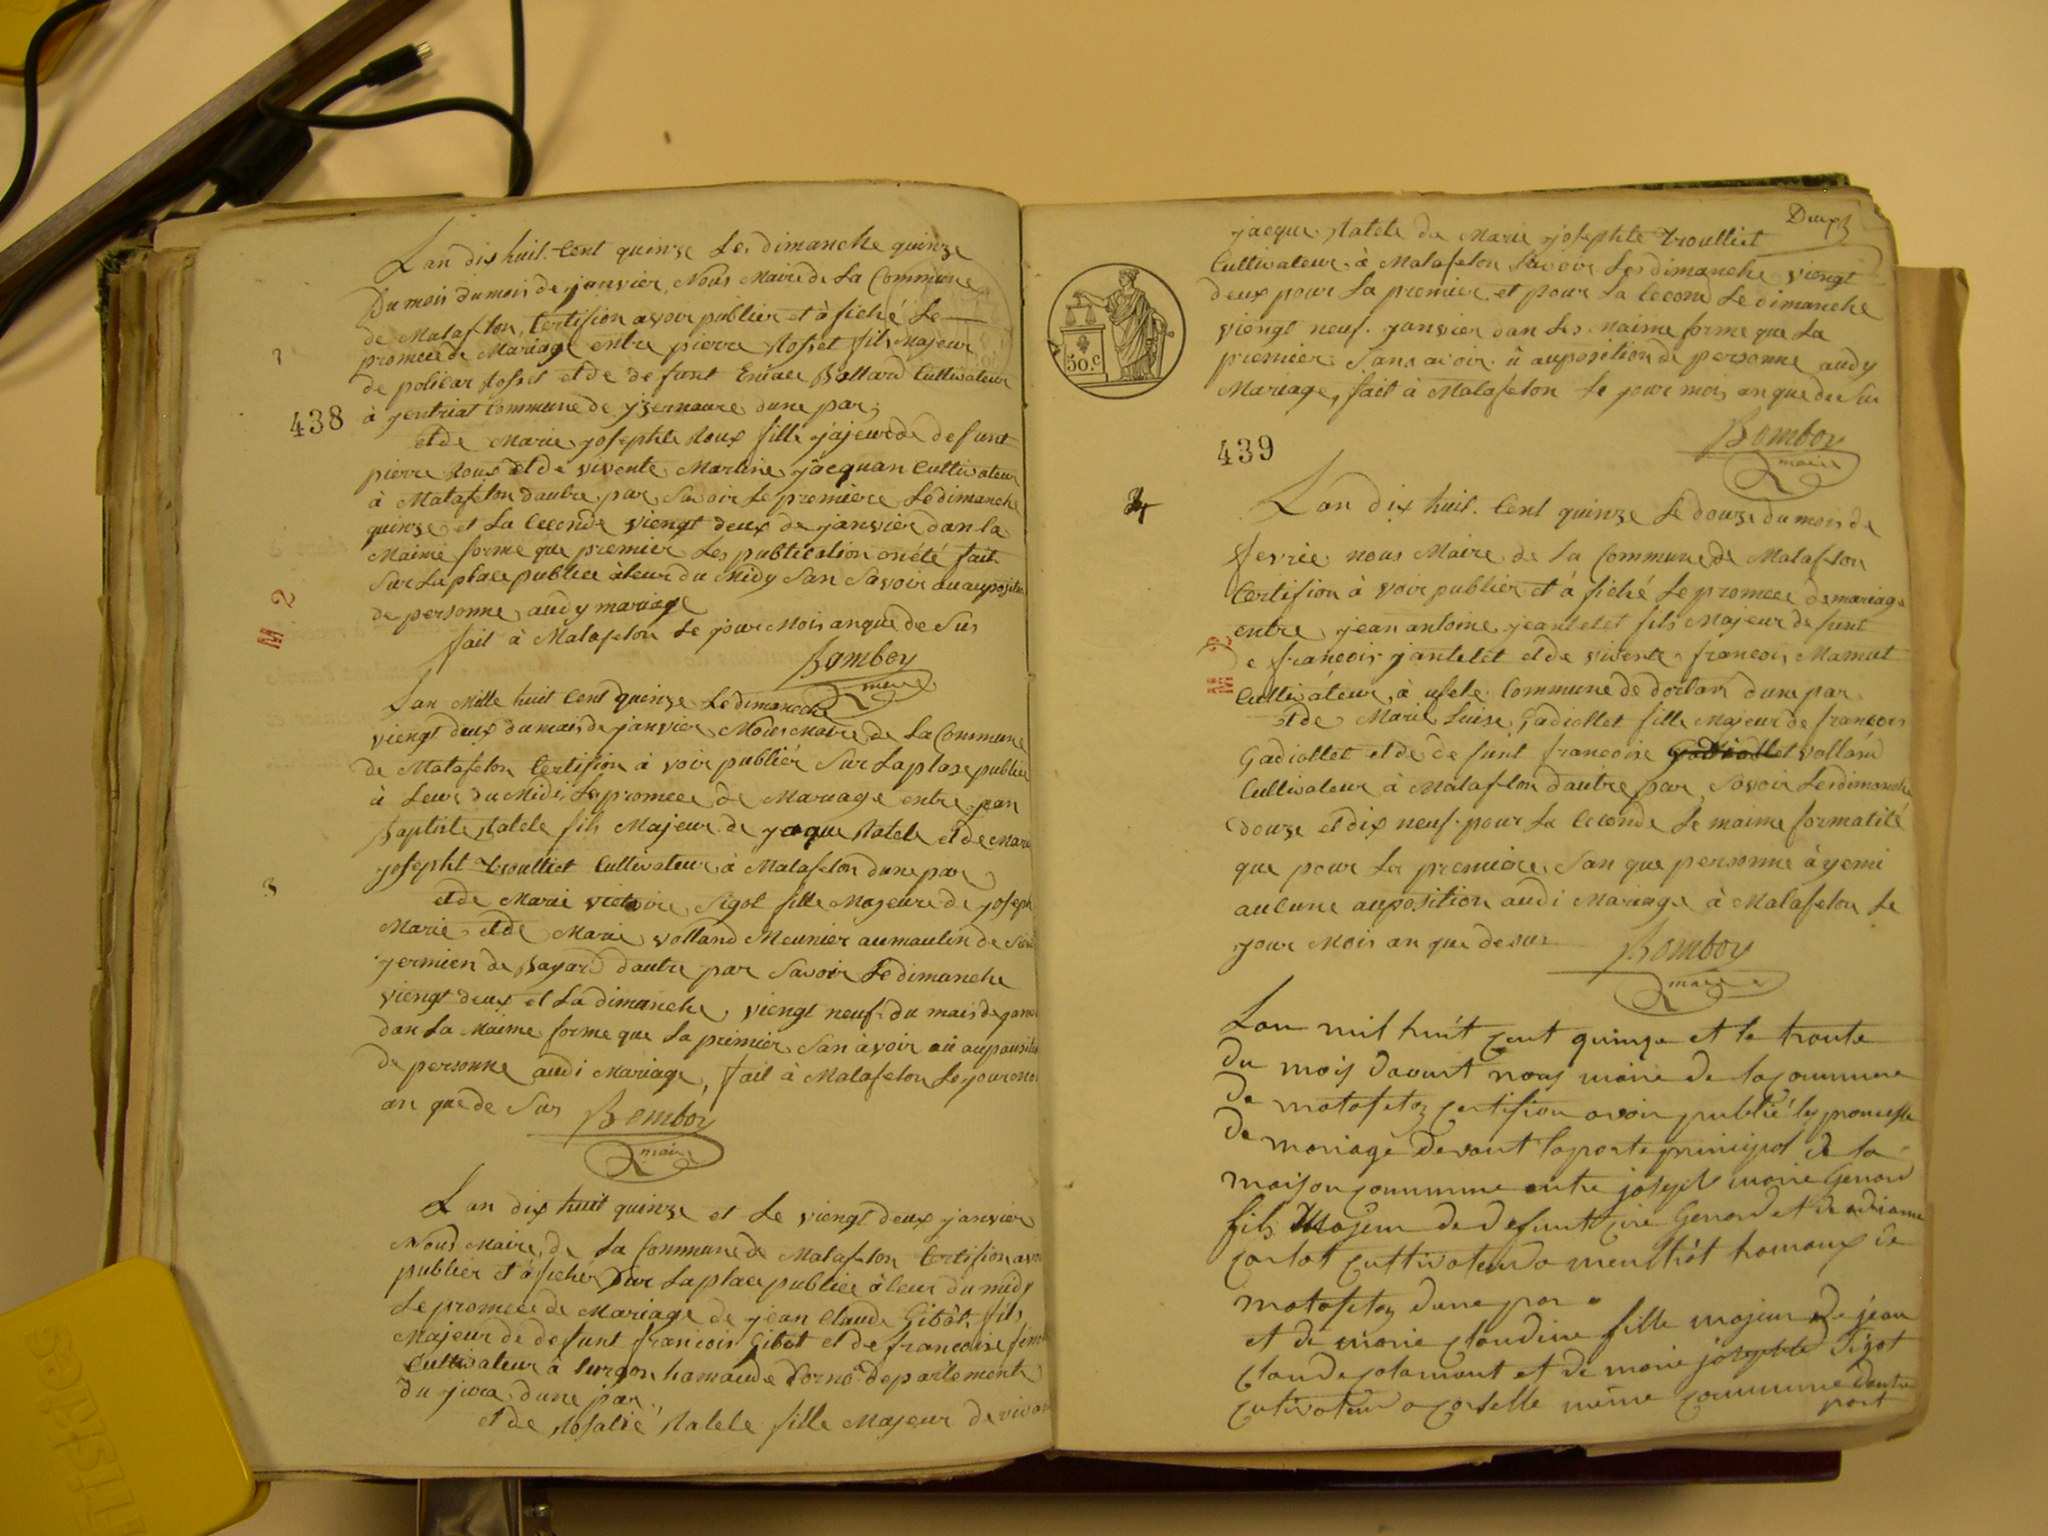 Lan dix huit Cent quinze Les dimanche quinze
Du mois du mois de janvier, Nous Maire de La Commune
de Matafelon, Certifion avoir publier et à fiché Le
promece de Mariage entre pierre Rosset fils Majeur
de policar Rosset et de defunt Vollard Cultivateur
à gentriat Commune de yzernaure dune par,
438
et de Marie josephte Roux fille majeur de defunt
pierre Roux et de vivente Martine jacquan Cultivateur
à Matafelon dautre par Savoir Le premiere Le dimanche
quinze et La Ceconde viengt deux de janvier dan la
Maime forme que premier Les publication on été fait
Sur La place publice à leur du Midy San Savoir au auposition
de personne audy mariage
2
fait à Matafelon Le jour Mois an que de Sus
Bomboy
maire
Lan Mille huit Cent quinze Le dimanche
viengt deux du mais de janvier Nous Maire de La Commune
de Matafelon Certifion à voir publiér Sur La plase publice
à Leur du Midi, Le promece de Mariage entre jean
Baptiste Tatele fils Majeur de jaque Tatele et de Marie
josepht Troulliet Cultivateur à Matafelon dune par
3
et de Marie victoire Sigot fille Majeure de joseph
Marie et de Marie volland Meunier au maulin de
germien de Bayard dautre par Savoir Le dimanche
viengt deux et La dimanche viengt neuf du mais de
dan La Maime forme que La primier San avoir aú
de personne audi Mariage, fait à Matafelon Le jour moi
an que de Sus Bomboy
maire
Lan dix huit quinze et Le viengt deux janvier
Nous Maire de La Commune de Matafelon Certifion avoi
publier et à ficher Sur La place publice à leur du midy
Le promece de Mariage de jean Claude Gibot fils
Majeur de defunt francois Gibot et de francoise
Cultivateur à hamaude departement
du jura dune par
et de Rosalié Tatele fille Majeur de
Deux
jacque Tatele de Marie josephte Troulliet
Cultivateur à Matafelon Savoir Les dimanche viengt
deux pour La premier et pour La Cecond Le dimanche
viengt neuf janvier dan Les Maime forme que La
premier Sans avoir ú auposition de personne audy
Mariage, fait à Matafelon Le jour mois an que de Sus
50.c
Bomboy
maire
439
4
Lan dix huit Cent quinze Le douze du mois de
fevrie nous Maire de La Commune de Matafelon
Certifion à voir publier et à fiché Le promece de mariage
entre jean antoine jeantelet fils Majeur de funt
de francois jantelet et de vivente francois Mamet
Cultivateur à ufele Commune de dortan dune par
et de Marie Luise Gadiollet fille Majeur de francois
Gadiollet et de de funt francoise Gadiollet volland
Cultivateur à Matafelon dautre par Savoir Le dimanche
douze et dix neuf pour La Ceconde Le maime formalité
que pour La premiere San que personne à yemi
aucune auposition audi Mariage à Matafelon Le
jour Mois an que de sus Bomboy
maire
Lan mil huit Cent quinze et le trente
du mois daoust nous maire de la commune
de matafelon certifion avoir publié les promesse
de mariage devant la porte principal de la
maison commune entre joseph marie Genod
fils Majeur de defunt Genod et de adrianne
Carlot Cultivateur a hamaux de
matafelon dune par
et de marie Claudine fille majeur de jean
Claude et de marie josephte Sigot
Cultivateur a corselle même commune dautre
part